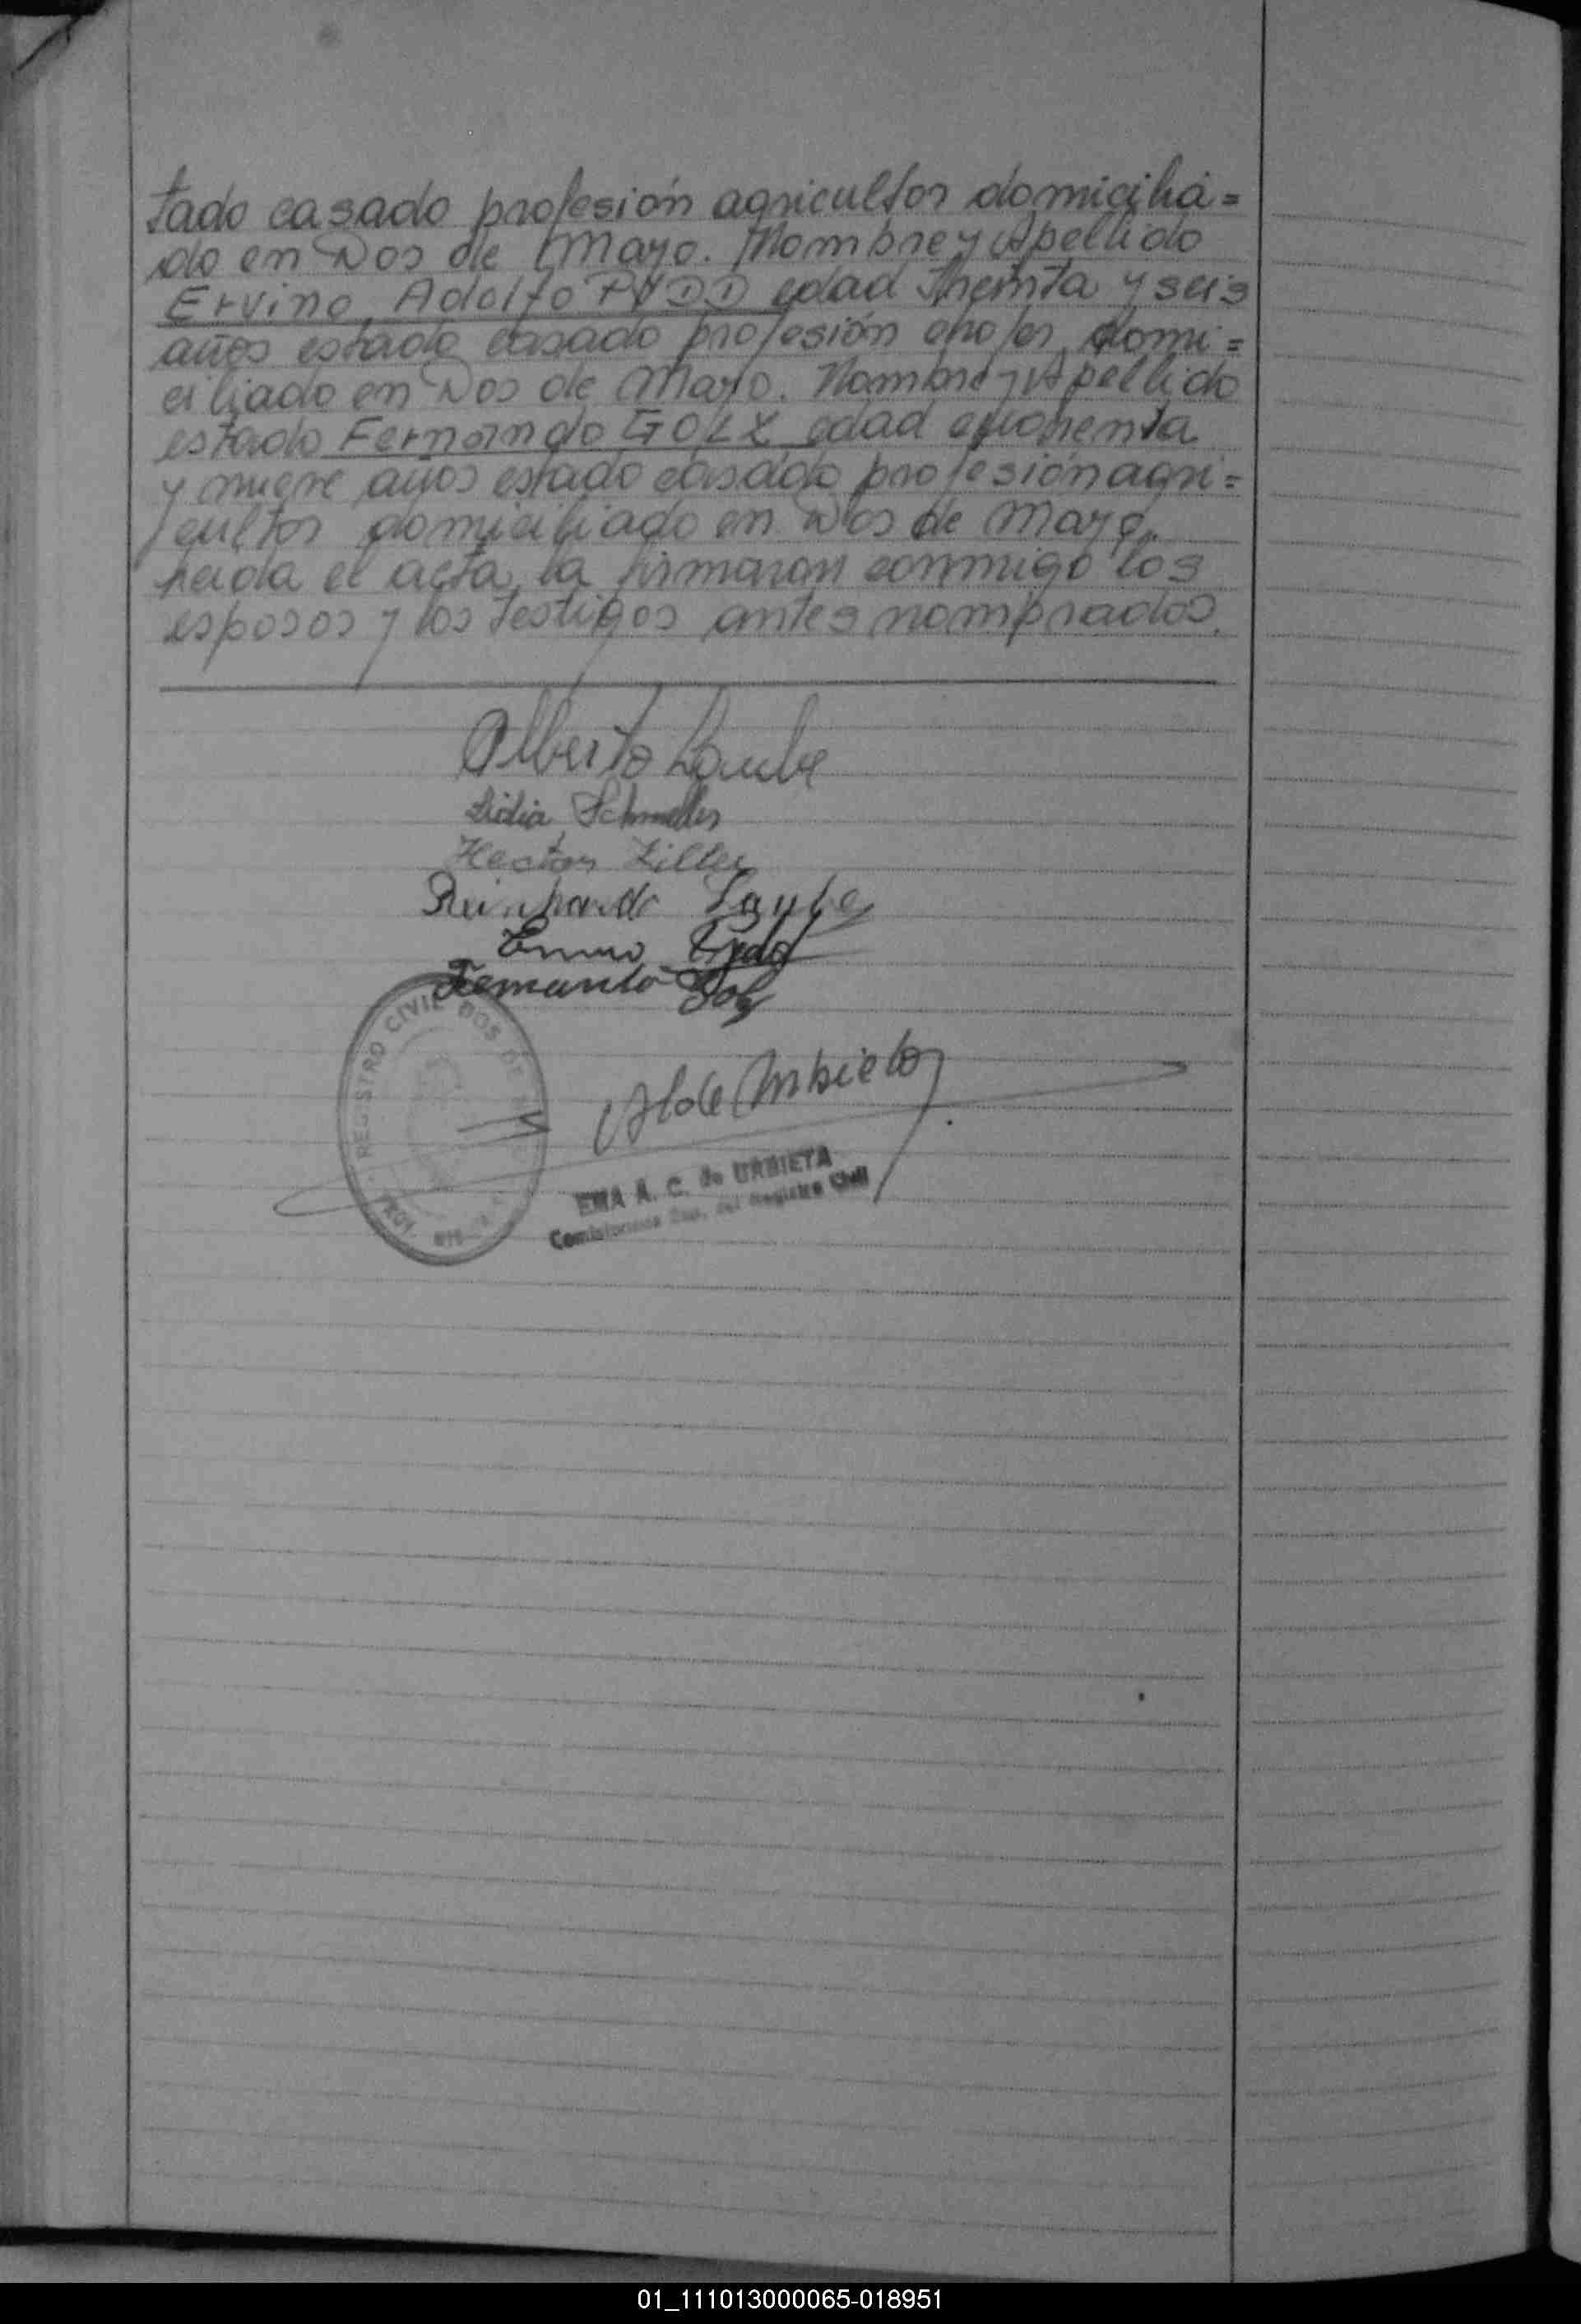 tado casado profesión agricultor domicilia=
do en Dos de Mayo. Nombre y Apellido
Ervino Adolfo edad treinta y seis
años estado casado profesión chofer domi=
ciliado en Dos de Mayo. Nombre y Apellido
estado Fernando GOLZ edad cuarenta
y nueve años estado casado profesión agri=
cultor domiciliado en Dos de Mayo.
el acta, la firmaron conmigo los
esposos y los testigos antes nombrados.
Alberto Laube
Lidia
Hector Ziller
Reinhardo Laube
Fernando Golz
REGISTRO CIVIL DOS DE
EMA A. C. de URBIETA
del Registro Civil
01_111013000065-018951